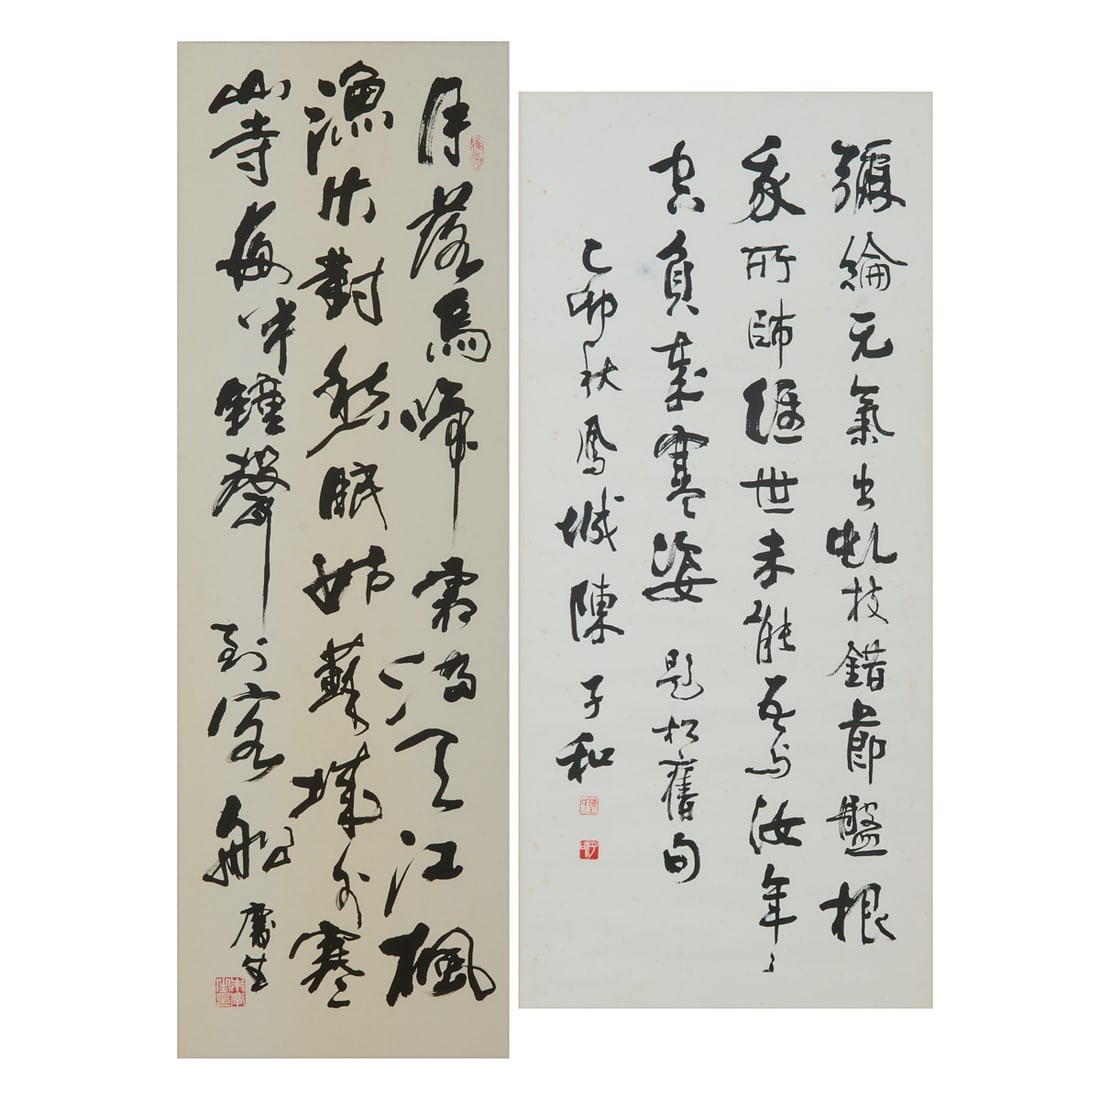 月落烏啼霜滿天江楓
漁火對愁眠姑蘇城外寒
山寺夜半鐘聲到客船
彌綸元氣出虬枝錯節盤根
我所師經世未能吾与汝年々
空負歲寒姿 題松舊句
乙卯秋鳳城陳子和